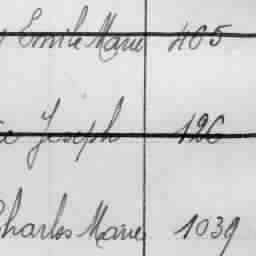 Emile Marie 405
Joseph 126
Charles Marie 1039